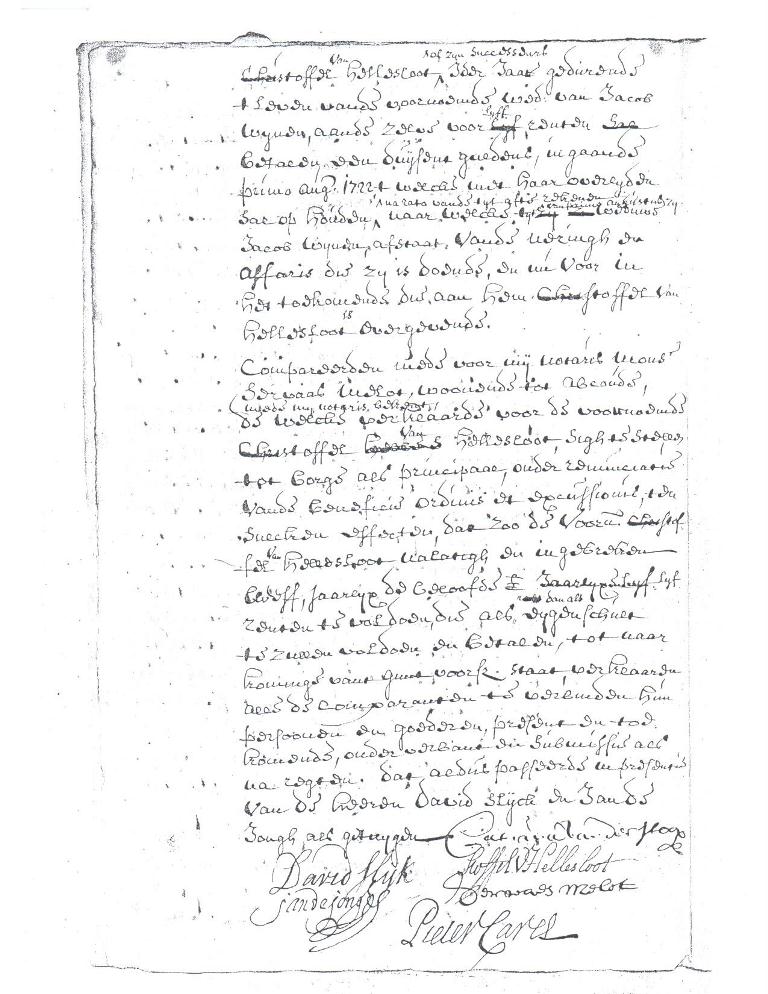 Van of zijn Successeurs
Christoffel Hellesloot, Ider Jaar gedurende
t leven vande voornoemde wed. van Jacob
Wijnen, aande zelve voor lijff renten
betaelen een duijsent guldens, in gaande
primo aug. 1722 t welck met haar overlyden
sal op houden, naar welcke tijt weduwe
Jacob Wijnen, afstaat, vande neringh en
affaris die zij is doende, en nu voor in
het toekomende die aan hem Christoffel Van
Hellesloot is overgevende.
Compareerden mede voor mij notaris Mons.r
Servaas Melot, woonende tot
mede mij notaris bekent
de welcke verklaarde voor de voornoemde
Christoffel Van Hellesloot, sigh te stellen
tot borge als principaal, onder renunciatie
vande beneficie ordinis et excussionis, ten
effecten, dat zoo de voorn. Christof-
fel Van Hellesloot nalatigh en in gebreken
bleeff, jaarlyx de beloofde Jaarlyxe lijf
renten te voldoen, die als dan als eygen schult
te zullen voldoen en betaelen, tot naar
kominge vant gunt voorsz. staat, verklaaren
de Comparanten te verbinden hun
persoonen en goederen, present en toe-
komende, onder verbant en submissie als
na regten. dat aldus passeerde in presentie
van de heeren David Slijck en Jan de
Jongh, als getuygen
David Slijk Stoffel V Hellesloot
Jan de Jongh Servaes Melot
Pieter Carel